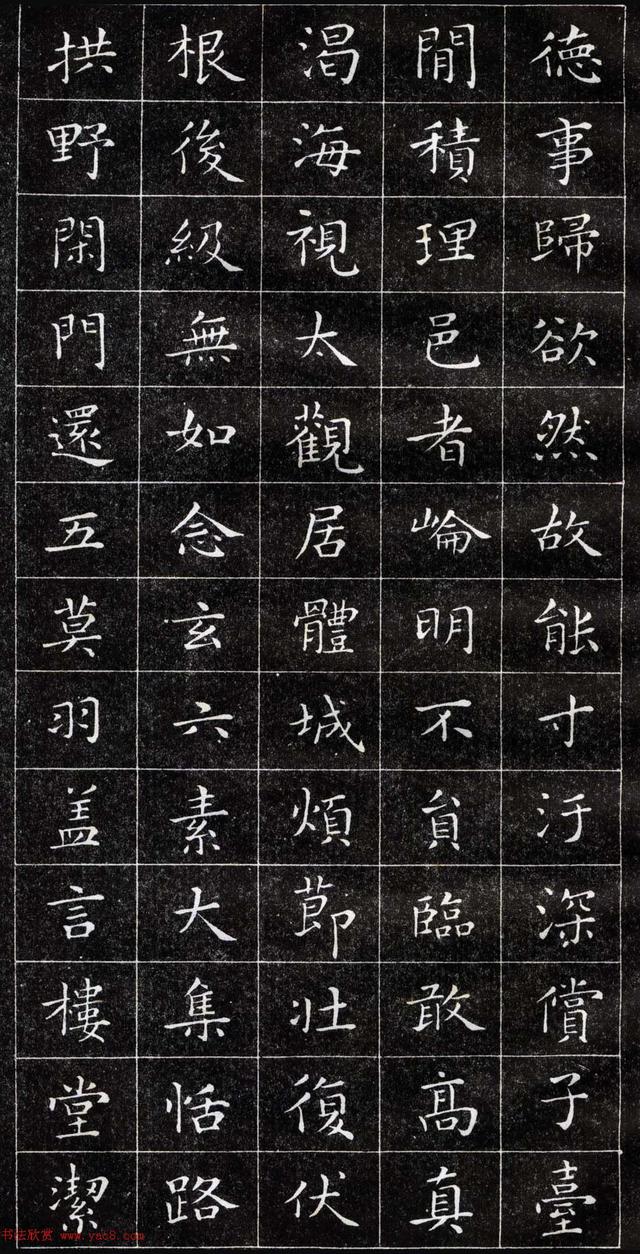 德事歸欲然故能寸汙深償子臺
閒積理邑者崘明不貟臨敢髙真
渴海視太觀居體城煩莭壮復伏
根後級無如念玄六素大集恬路
拱野閑門還五莫羽盖言樓堂潔
书法欣赏 www.yac8.com